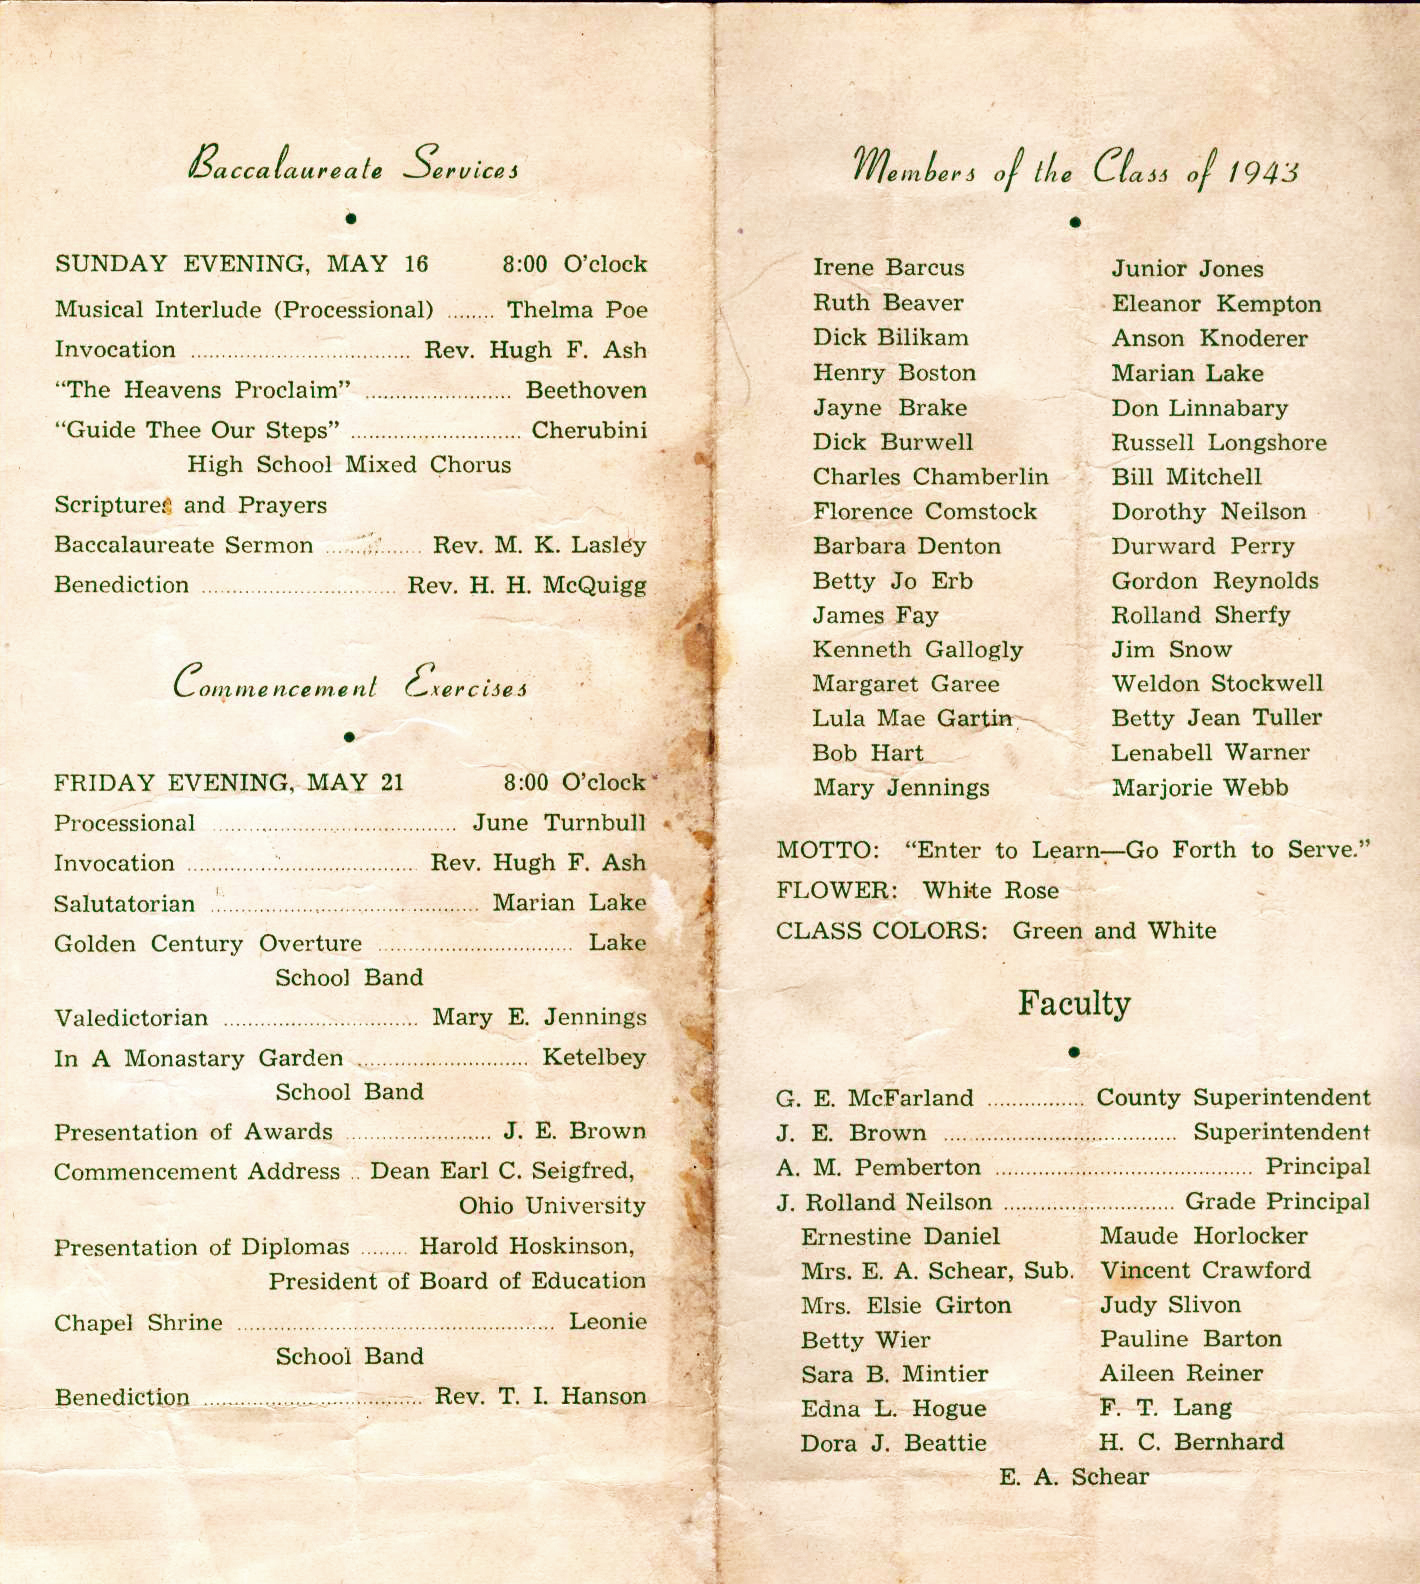 Baccalaureate Services
SUNDAY EVENING, MAY 16 8:00 O'clock
Musical Interlude (Processional) ........ Thelma Poe
Invocation .................................... Rev. Hugh F. Ash
“The Heavens Proclaim” ........................ Beethoven
“Guide Thee Our Steps” ............................ Cherubini
High School Mixed Chorus
Scriptures and Prayers
Baccalaureate Sermon ................ Rev. M. K. Lasley
Benediction ................................ Rev. H. H. McQuigg
Commencement Exercises
FRIDAY EVENING, MAY 21 8:00 O'clock
Processional ........................................ June Turnbull
Invocation ..................................... Rev. Hugh F. Ash
Salutatorian ............................................ Marian Lake
Golden Century Overture ................................ Lake
School Band
Valedictorian ................................ Mary E. Jennings
In A Monastary Garden ............................ Ketelbey
School Band
Presentation of Awards ........................ J. E. Brown
Commencement Address .. Dean Earl C. Seigfred,
Ohio University
Presentation of Diplomas ........ Harold Hoskinson,
President of Board of Education
Chapel Shrine .................................................... Leonie
School Band
Benediction .................................... Rev. T. I. Hanson
Members of the Class of 1943
Irene Barcus
Ruth Beaver
Dick Bilikam
Henry Boston
Jayne Brake
Dick Burwell
Charles Chamberlin
Florence Comstock
Barbara Denton
Betty Jo Erb
James Fay
Kenneth Gallogly
Margaret Garee
Lula Mae Gartin
Bob Hart
Mary Jennings
Junior Jones
Eleanor Kempton
Anson Knoderer
Marian Lake
Don Linnabary
Russell Longshore
Bill Mitchell
Dorothy Neilson
Durward Perry
Gordon Reynolds
Rolland Sherfy
Jim Snow
Weldon Stockwell
Betty Jean Tuller
Lenabell Warner
Marjorie Webb
MOTTO: “Enter to Learn—Go Forth to Serve.”
FLOWER: White Rose
CLASS COLORS: Green and White
Faculty
G. E. McFarland ................ County Superintendent
J. E. Brown ...................................... Superintendent
A. M. Pemberton .......................................... Principal
J. Rolland Neilson ............................ Grade Principal
Ernestine Daniel
Mrs. E. A. Schear, Sub.
Mrs. Elsie Girton
Betty Wier
Sara B. Mintier
Edna L. Hogue
Dora J. Beattie
Maude Horlocker
Vincent Crawford
Judy Slivon
Pauline Barton
Aileen Reiner
F. T. Lang
H. C. Bernhard
E. A. Schear